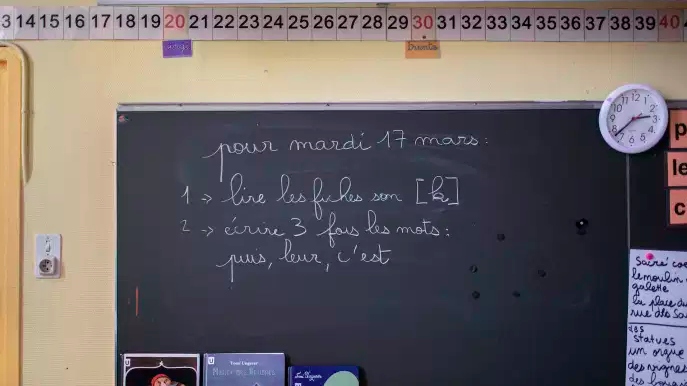 3 14 15 16 17 18 19 20 21 22 23 24 25 26 27 28 29 30 31 32 33 34 35 36 37 38 39 40
vingt
trente
12 1 2 3 4 5 6 7 8 9 10 11
pour mardi 17 mars:
1 → lire les fiches son [k]
2 → écrire 3 fois les mots:
puis, leur, c'est
p
le
c
Sacré coe
le moulin
galette
la place du
rue des Sau
des
statues
un orgue
des vignes
Tomi Ungerer